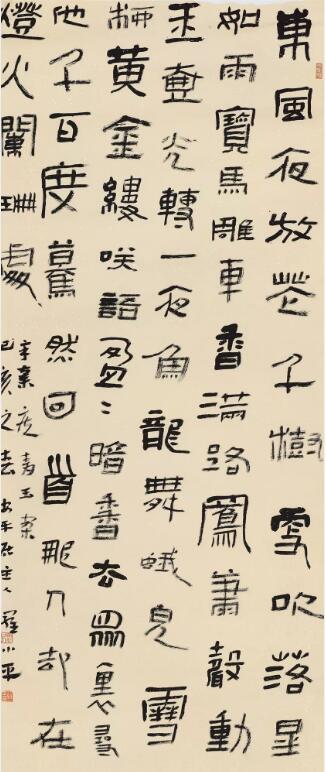 東風夜放花千樹雪吹落星
如雨寶馬雕車香滿路鳳簫聲動
玉壺光轉一夜魚龍舞蛾兒雪
柳黃金縷咲語盈〻暗香去眾里尋
他千百度驀然回首那人却在
燈火闌珊處
辛棄疾青玉案
己亥之主人羅小平